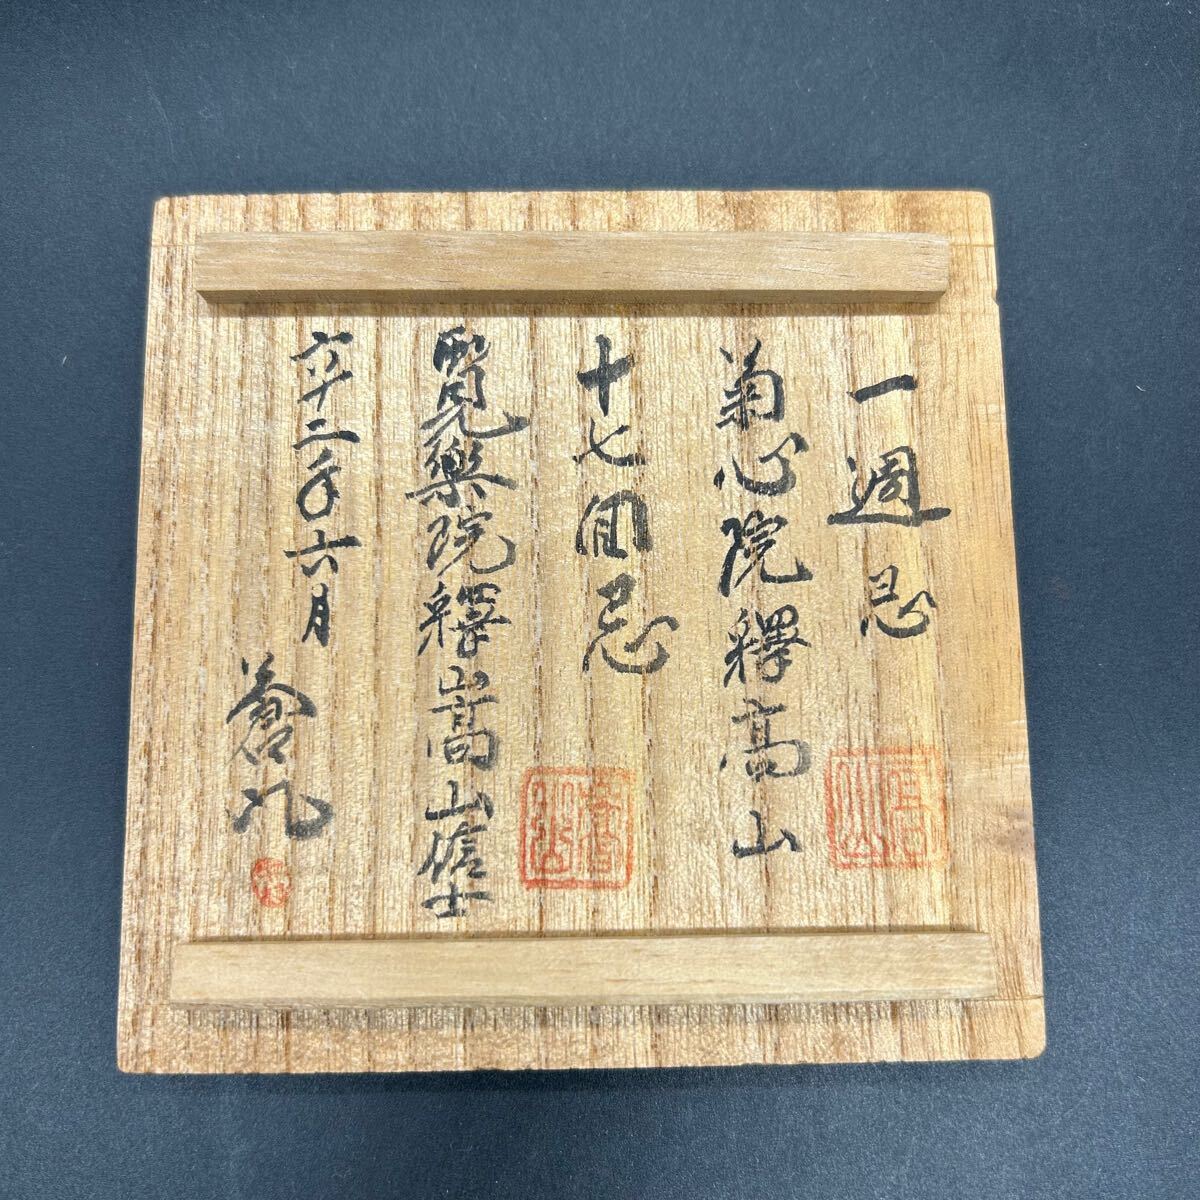 一週忌
菊心院釋高山
十七回忌
賢樂院釋嵩山信士
六十二年六月